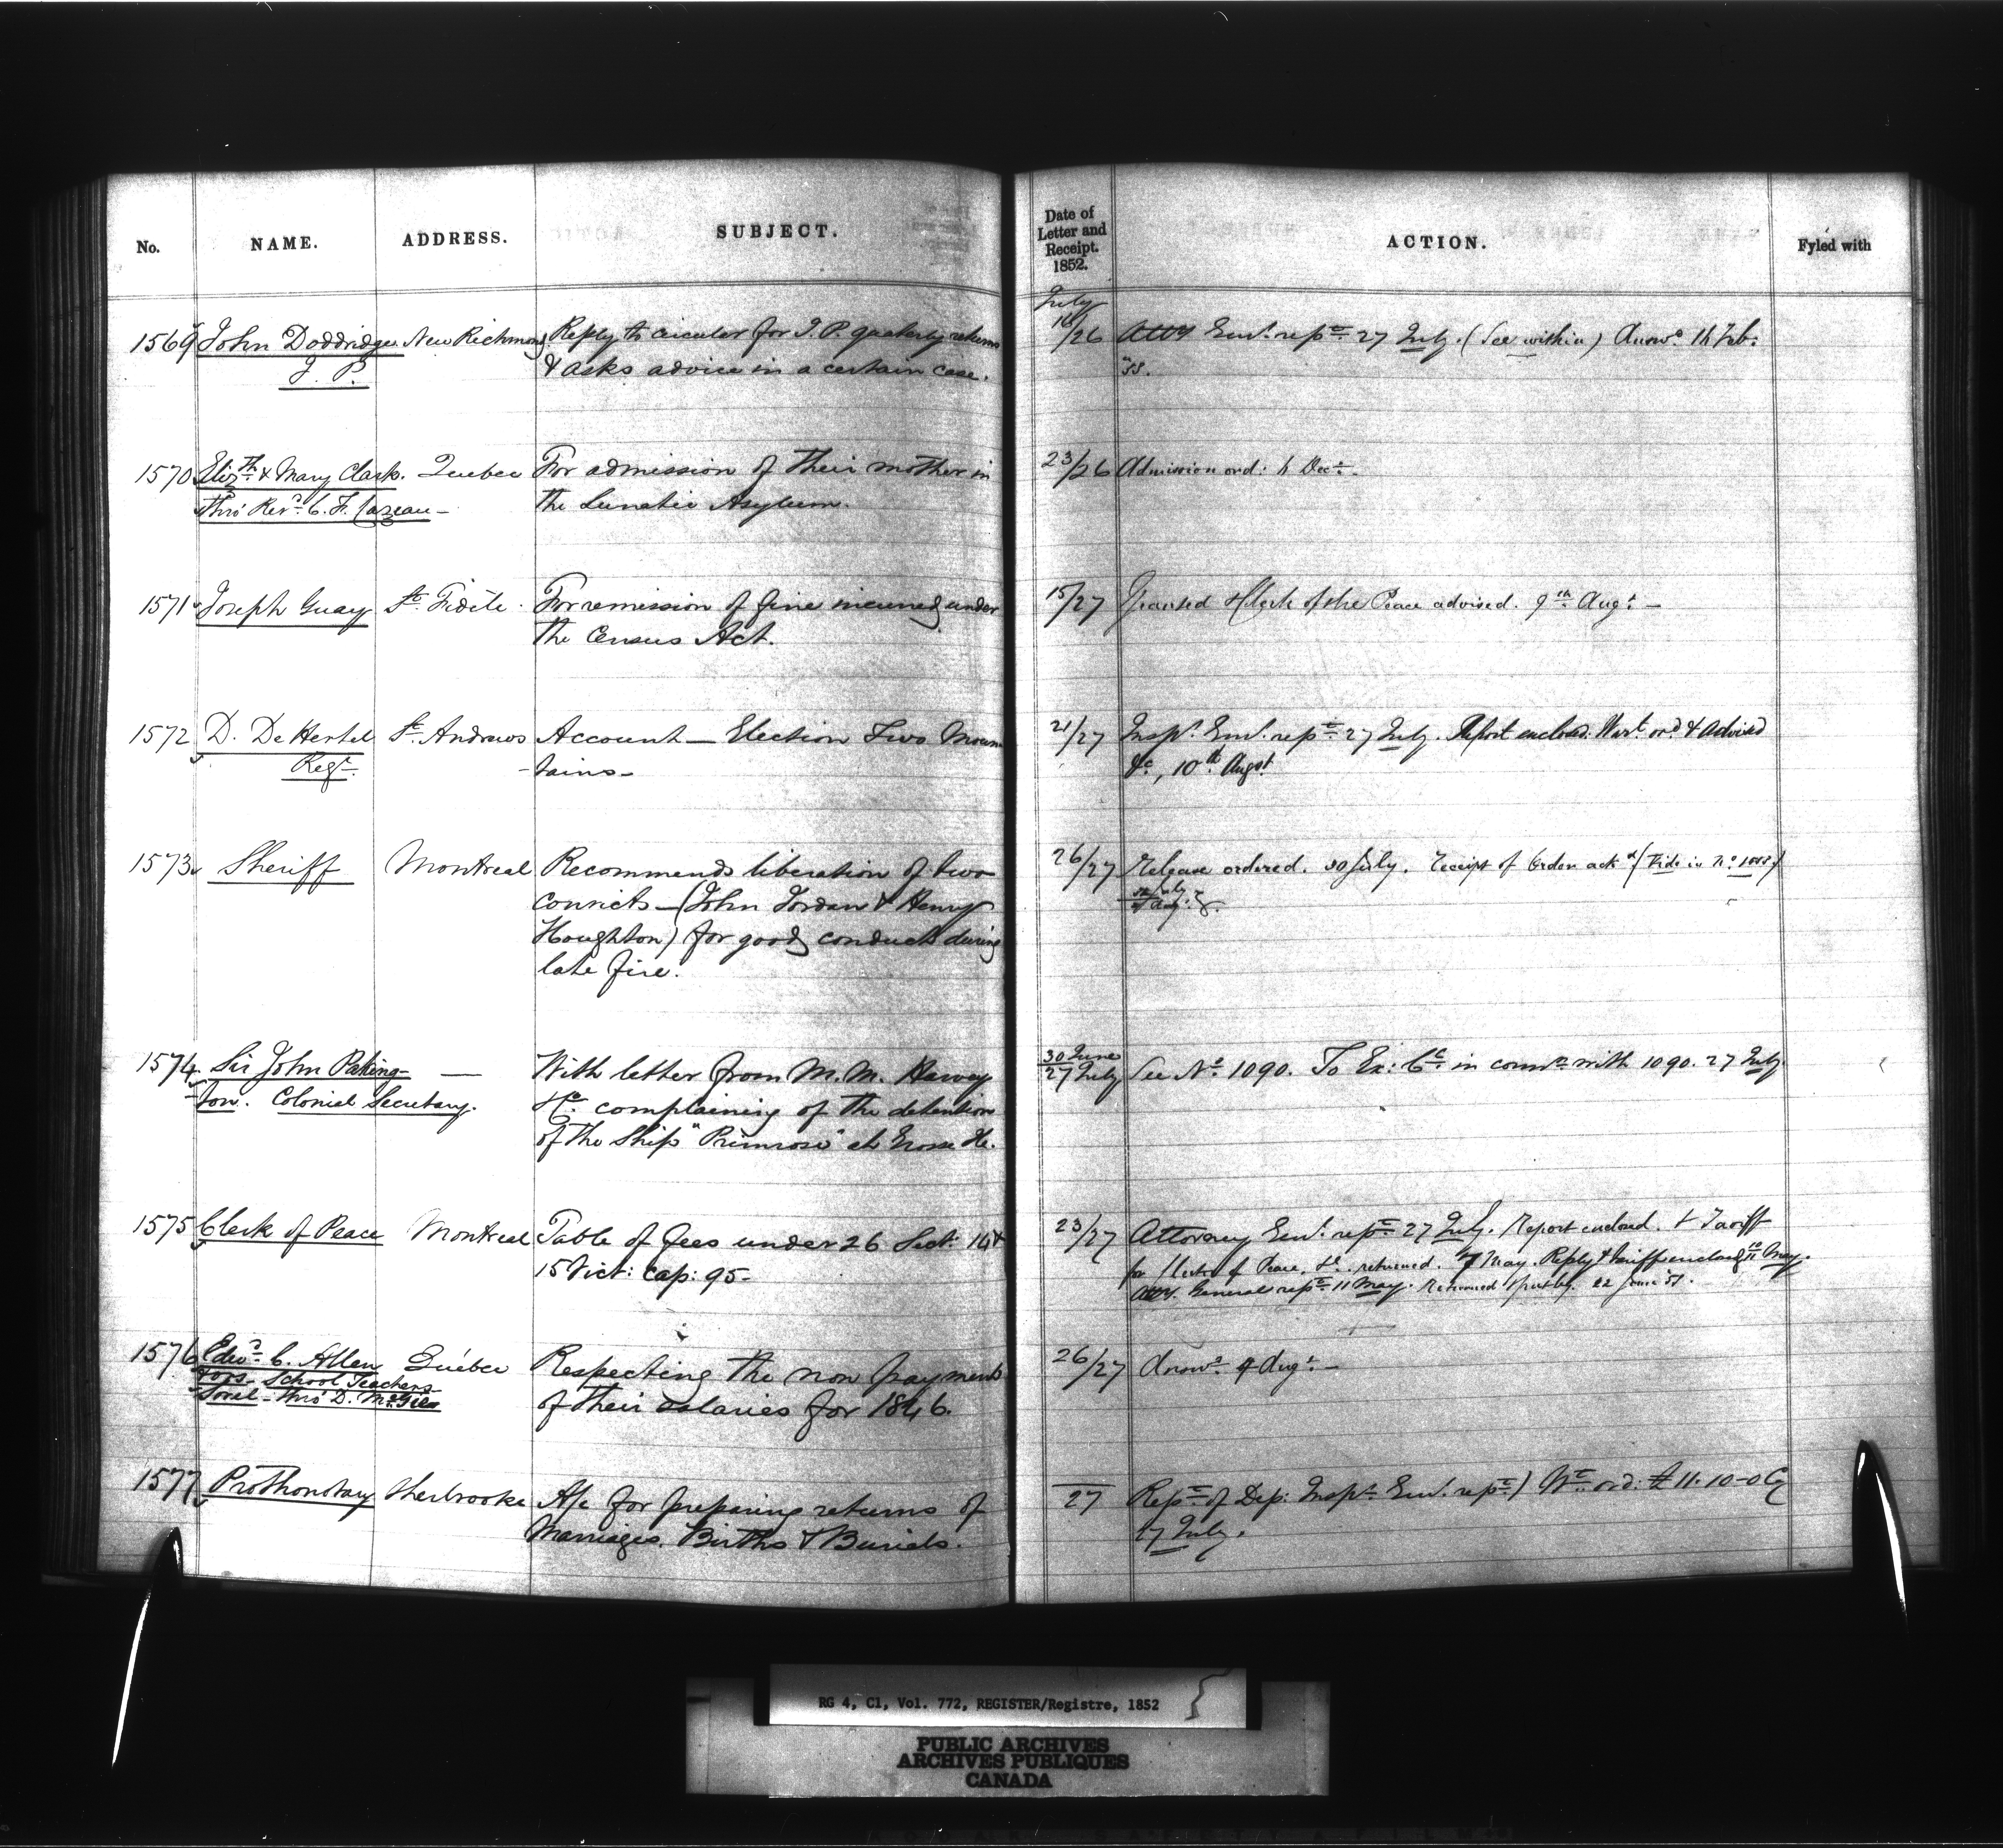 No.
NAME.
ADDRESS.
SUBJECT.
Date of
Letter and
Receipt.
1852.
ACTION.
Fyled with
July
1569 John Doddridge New Richmond Reply to circular for J. P. quarterly returns
J. P. & asks advice in a certain case.
16/26 Atty Genl. repce 27 July. (See within) Answd. 14 Feb:
1570 Elizth & Mary Clark. Quebec For admission of their mother in
thro' Revd. C. F. Cazeau - the Lunatic Asylum.
23/26 Admission ord: 4 Dec
1571 Joseph Guay St. Fidèle. For remission of fine incurred under
the Census Act.
15/27 Granted & Clerk of the Peace advised. 9th Augt. -
1572 D. De Hertel St. Andrews Account - Election Two Moun
Regr. -tains -
21/27 Inspr. Genl. repce 27 July. Report enclosed. Wart. ord & Advised
&c., 10th Augst
1573 Sheriff Montreal Recommends liberation of two
convicts - (John Jordan & Henry
Houghton) for good conduct during
late fire.
26/27 Release ordered. 30 July. Receipt of Order ackd (Vide in No.
1574 Sir John Paking- — With letter from M. M. Harvey
-ton. Colonial Secretary. &c. complaining of the detention
of the Ship "Primrose" at Grosse Ile.
30 June
27 July See No. 1090. To Ex: Cl in connn with 1090. 27 July
1575 Clerk of Peace Montreal Table of fees under 26 Sect: 14 &
15 Vict: cap: 95-
23/27 Attorney Genl. repce 27 July. Report enclosed. & Tariff
for Clerk of Peace, &c. returned. 7 May. Reply & tariff enclosed 10 May.
Atty. General repce 11 May. Returned 22 June
1576 Edwd. C. Allen Québec Respecting the non payment
School Teachers of their salaries for 1846.
Sorel - thro' D. McGie
26/27 Answd. 4 Augt. -
1577 Prothonotary Sherbrooke A/c for preparing returns of
Marriages, Births & Burials.
27 Repce of Dep: Inspr. Genl. repce) Wt ord: £11.10-0 Cy
27 July.
RG 4, C1, Vol. 772, REGISTER/Registre, 1852
PUBLIC ARCHIVES
ARCHIVES PUBLIQUES
CANADA